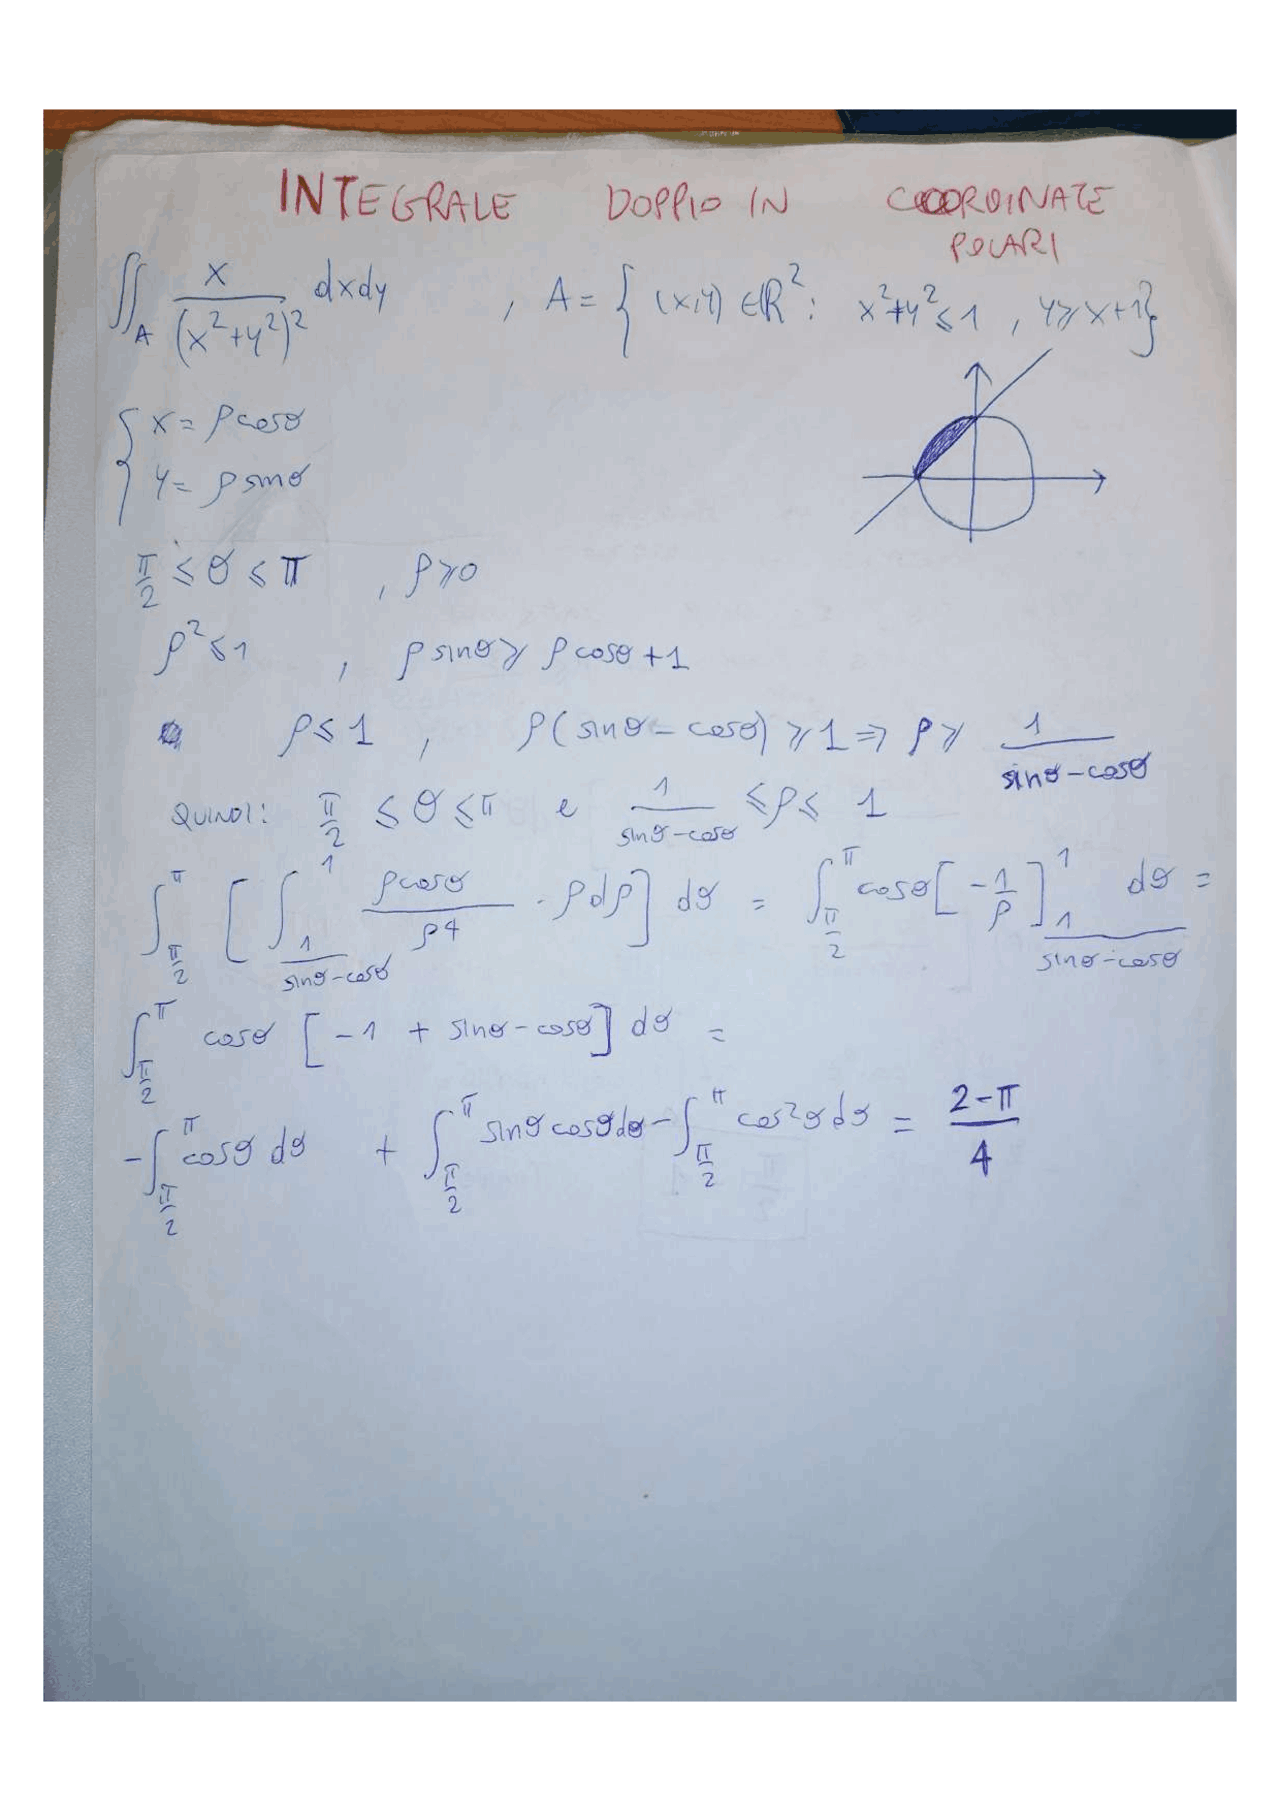 INTEGRALE DOPPIO IN COORDINATE
POLARI
∬_A x/(x²+y²)² dxdy , A = { (x,y) ∈ ℝ² : x²+y² ≤ 1 , y ≥ x+1 }
{ x = ρcosθ
y = ρsinθ
π/2 ≤ θ ≤ π , ρ ≥ 0
ρ² ≤ 1 , ρ sinθ ≥ ρ cosθ + 1
ρ ≤ 1 , ρ(sinθ - cosθ) ≥ 1 ⇒ ρ ≥ 1/(sinθ - cosθ)
QUINDI: π/2 ≤ θ ≤ π e 1/(sinθ - cosθ) ≤ ρ ≤ 1
∫_{π/2}^{π} [ ∫_{1/(sinθ - cosθ)}^{1} ρcosθ/ρ⁴ · ρdρ ] dθ = ∫_{π/2}^{π} cosθ [ -1/ρ ]_{1/(sinθ - cosθ)}^{1} dθ =
∫_{π/2}^{π} cosθ [ -1 + sinθ - cosθ ] dθ =
-∫_{π/2}^{π} cosθ dθ + ∫_{π/2}^{π} sinθ cosθ dθ - ∫_{π/2}^{π} cos²θ dθ = (2-π)/4